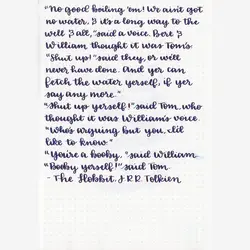 "No good boiling 'em! We aint got
no water, & it's a long way to the
well & all," said a voice. Bert &
William thought it was Tom's.
"Shut up!" said they, or we'll
never have done. And yer can
fetch the water yerself, if yer
say any more."
"Shut up yerself!" said Tom, who
thought it was William's voice
"Who's arguing but you, I'd
like to know."
"You're a booby," said William
"Booby yerself!" said Tom
- The Hobbit, J.R.R. Tolkien